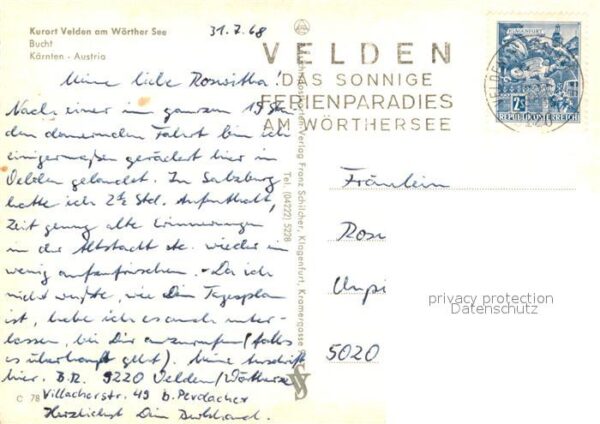 Kurort Velden am Wörther See
Bucht
Kärnten · Austria
31.7.68
VELDEN
DAS SONNIGE
FERIENPARADIES
AM WÖRTHERSEE
KLAGENFURT
2S
REPUBLIK ÖSTERREICH
Meine liebe Roswitha!
Nach einer im ganzen 19 Std
dauernden Fahrt bin ich
einigermaßen gerädert hier in
Velden gelandet. In Salzburg
hatte ich 2½ Std. Aufenthalt,
Zeit genug alte Erinnerungen
in der Altstadt etc. wieder ein
wenig aufzufrischen. - Da ich
nicht wußte, wie Dein Tagesplan
ist, habe ich es auch unter-
lassen, bei Dir anzurufen (falls
es überhaupt geht). Meine Anschrift
hier: 9220 Velden/Wörthersee
Villacherstr. 49 b. Perdacher
Herzlichst Dein
C 78
Verlag Franz Schilcher, Klagenfurt, Kramergasse
Tel. (04222) 5228
Fräulein
Rosw
Unpi
5020
privacy protection
Datenschutz